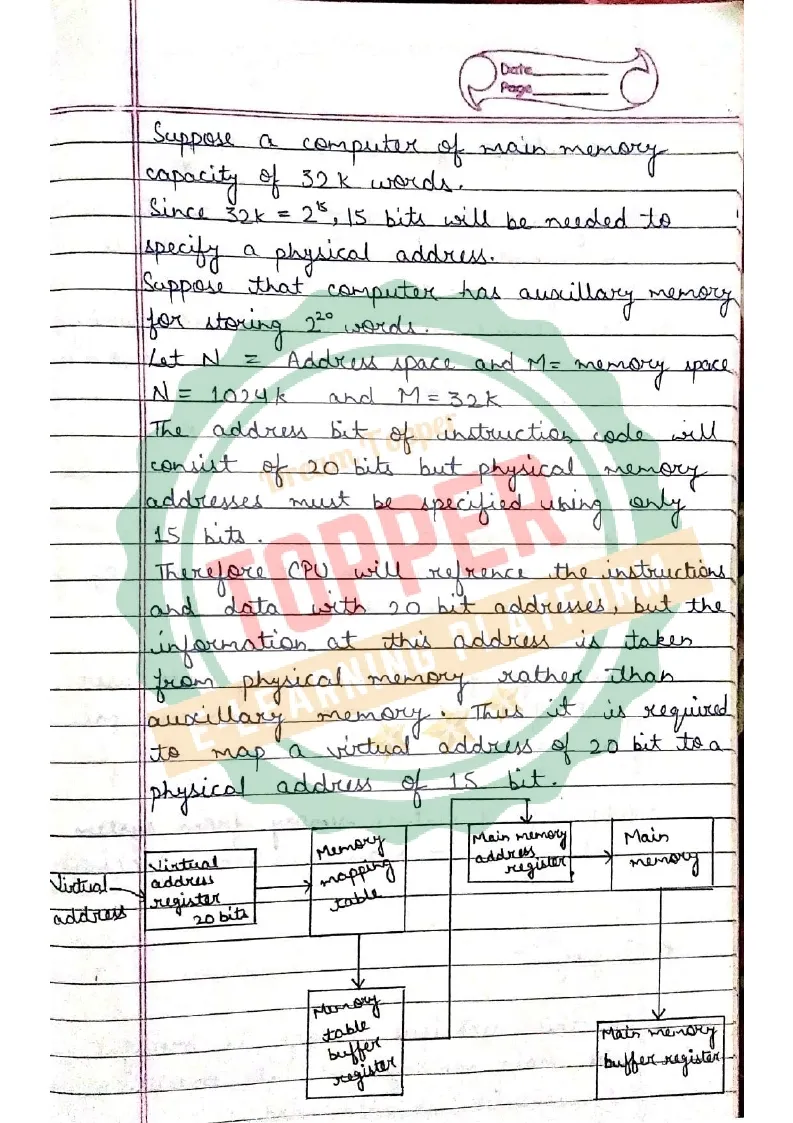 Date
Page
Suppose a computer of main memory
capacity of 32k words.
Since 32k = 2^15, 15 bits will be needed to
specify a physical address.
Suppose that computer has auxillary memory
for storing 2^20 words.
Let N = Address space and M = memory space
N = 1024k and M = 32k
The address bit of instruction code will
consist of 20 bits but physical memory
addresses must be specified using only
15 bits.
Therefore CPU will refrence the instructions
and data with 20 bit addresses, but the
information at this address is taken
from physical memory rather than
auxillary memory. Thus it is required
to map a virtual address of 20 bit to a
physical address of 15 bit.
Virtual
address
Virtual
address
register
20 bits
Memory
mapping
table
Main memory
address
register
Main
memory
Memory
table
buffer
register
Main memory
buffer register
Dream Topper
TOPPER
E-LEARNING PLATFORM